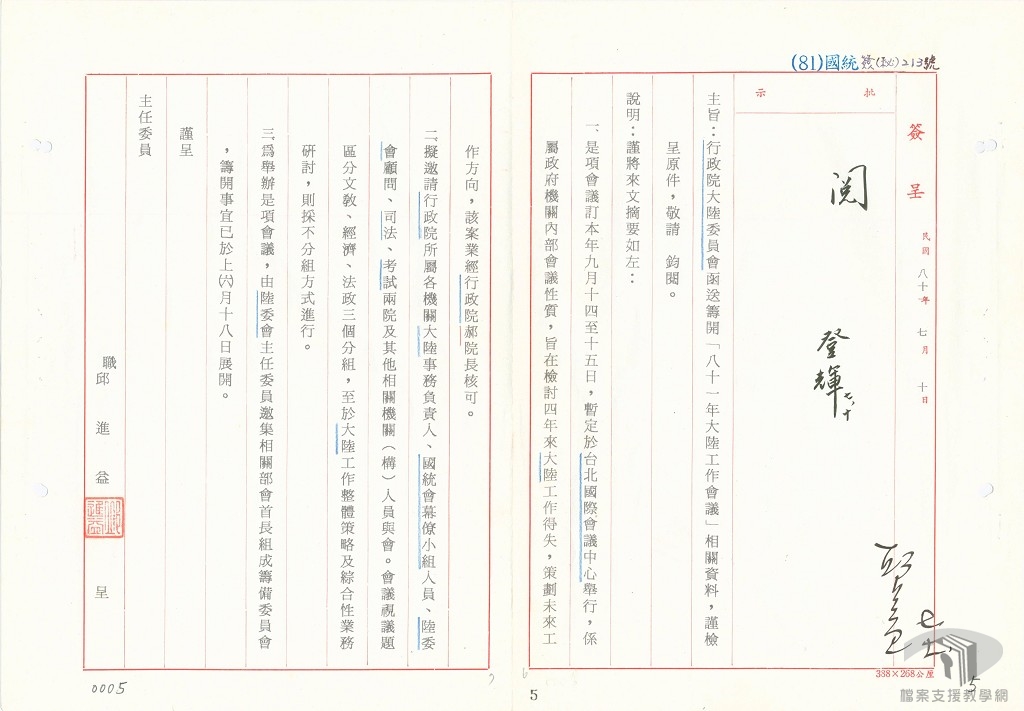 (81)國統簽(秘)213號
簽呈
民國八十年七月十日
批示
閱
登輝 七、十
主旨：行政院大陸委員會函送籌開「八十一年大陸工作會議」相關資料，謹檢
呈原件，敬請　鈞閱。
說明：謹將來文摘要如左：
一、是項會議訂本年九月十四至十五日，暫定於台北國際會議中心舉行，係
屬政府機關內部會議性質，旨在檢討四年來大陸工作得失，策劃未來工
338×268公厘
5
5
作方向，該案業經行政院郝院長核可。
二、擬邀請行政院所屬各機關大陸事務負責人、國統會幕僚小組人員、陸委
會顧問、司法、考試兩院及其他相關機關（構）人員與會。會議視議題
區分文教、經濟、法政三個分組，至於大陸工作整體策略及綜合性業務
研討，則採不分組方式進行。
三、爲舉辦是項會議，由陸委會主任委員邀集相關部會首長組成籌備委員會
，籌開事宜已於上㈥月十八日展開。
謹呈
主任委員
職邱進益呈
0005
檔案支援教學網